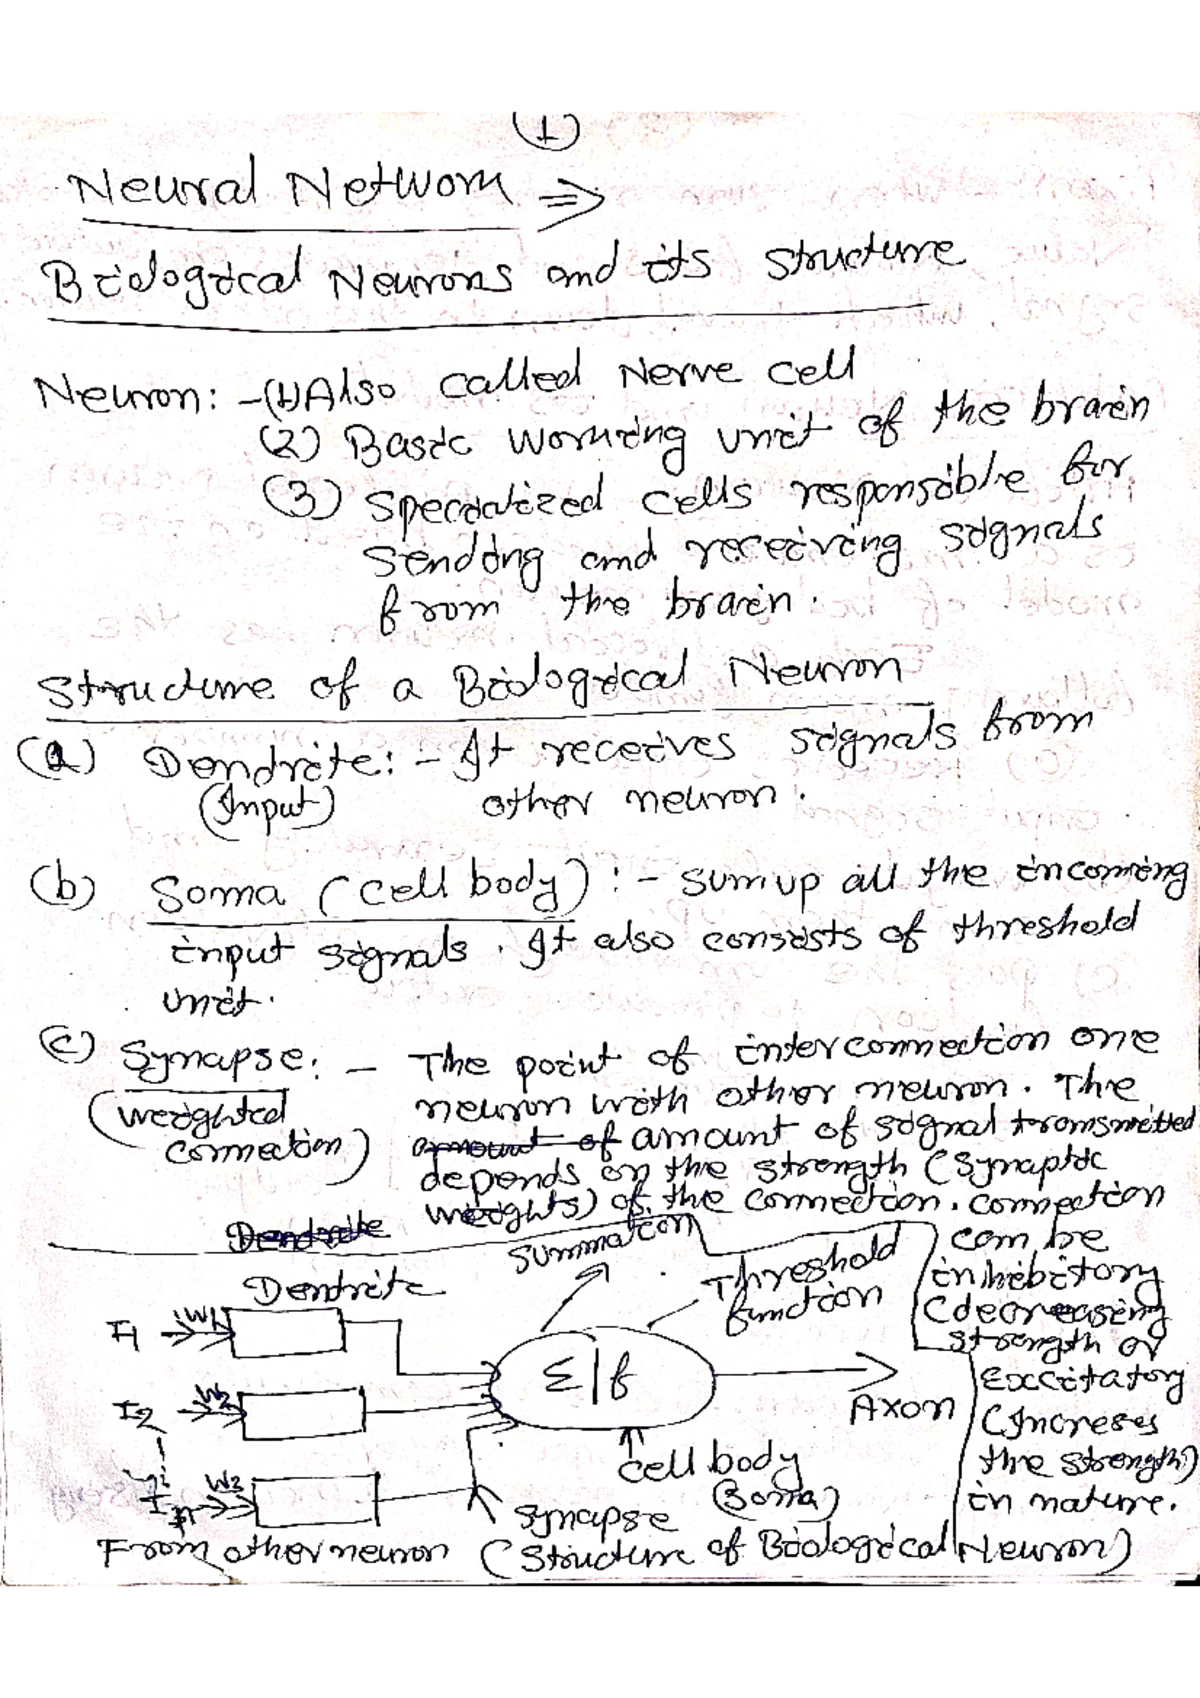 (1)
Neural Network ⇒
Biological Neurons and its structure
Neuron: - (1) Also called Nerve cell
(2) Basic working unit of the brain
(3) specialized cells responsible for
sending and receiving signals
from the brain.
Structure of a Biological Neuron
(a) Dendrite: - It receives signals from
(Input) other neuron.
(b) Soma (cell body): - sum up all the incoming
input signals. It also consists of threshold
unit.
(c) Synapse: - The point of interconnection one
(weighted neuron with other neuron. The
connection) amount of amount of signal transmitted
depends on the strength (synaptic
weights) of the connection. connection
can be
inhibitory
(decreasing
strength or
Excitatory
(Increses
the strength)
in nature.
Dendrite
Dendrite
summation
Threshold
function
I1 W1
I2 W2
In W3
Σ|f
Axon
cell body
(Soma)
synapse
From other neuron (Structure of Biological Neuron)